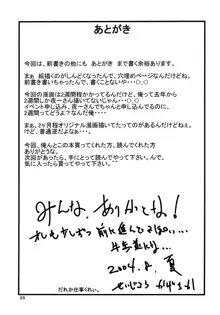 あとがき
今回は、前書きの他にも あとがき まで書く余裕あります。
まぁ 絵描くのがしんどくなったんで、穴埋めページなんだけどね。
前書きいっちゃったんで、書くことないや…（・_・）
今回の漫画は2週間程かかってるんだけど、俺って去年から
2週間しか夜一さん描いてないじゃん…（・_・）
イベント申し込み、夜一さんでちゃんと申し込んでるのに、
2週間ってどうよ？なんだ俺・・・・
まぁ、2ヶ月程オリジナル漫画描いてたってのがあるんだけどねぇ。
けど、普通逆だよぁ…
今回、俺んとこの本買ってくれた方、読んでくれた方
ありがとうな。
次回があったら、手にとって読んでやって下さい。んで、
気に入ったら買ってやって下さい。
みんな、ありがとな！
オレも少しずつ 前に進んでるぽい…
2004.8. 夏
だれか仕事くれぃ。